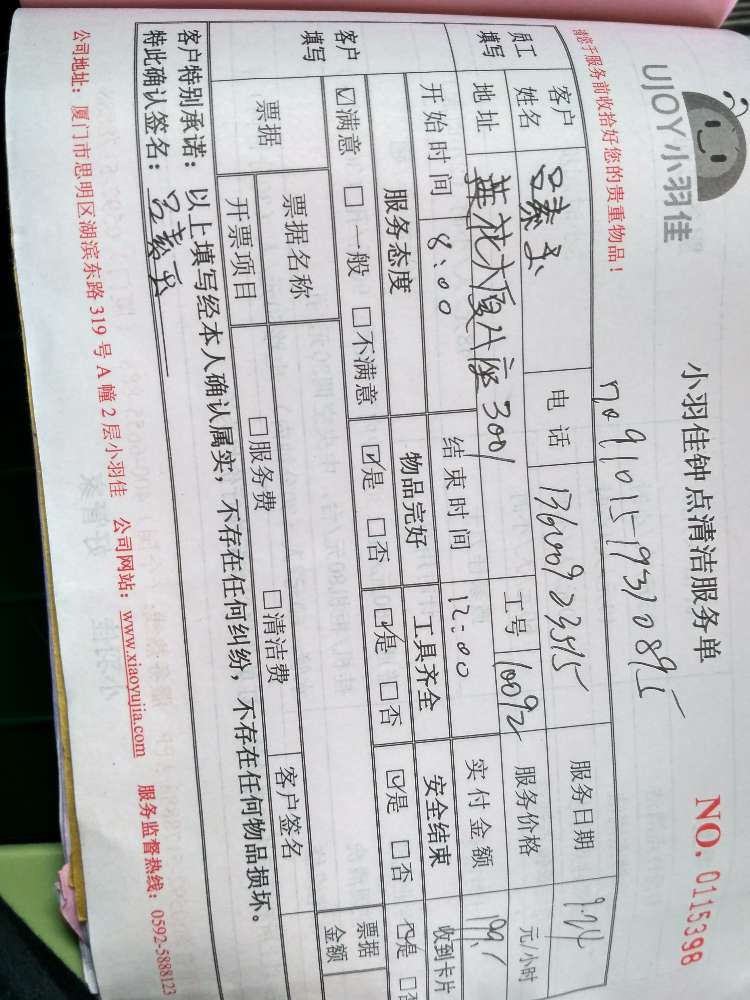 UJOY小羽佳
小羽佳钟点清洁服务单
NO. 0115398
请您于服务前收拾好您的贵重物品！
no 9101519310895
员工填写
客户姓名 吕素玉 电话 13600923515 服务日期 9.24
地址 莲花大厦 座3001 工号 10092 服务价格 元/小时
开始时间 8:00 结束时间 12:00 实付金额 199.1
客户填写
服务态度 物品完好 工具齐全 安全结束 收到卡片
☑满意 □一般 □不满意 ☑是 □否 ☑是 □否 ☑是 □否 ☑是 □否
票据 票据名称 客户签名 票据金额
开票项目 □服务费 □清洁费
客户特别承诺：以上填写经本人确认属实，不存在任何纠纷，不存在任何物品损坏。
特此确认签名：吕素玉
公司地址：厦门市思明区湖滨东路 319 号 A 幢 2 层小羽佳 公司网站：www.xiaoyujia.com 服务监督热线：0592-5888123